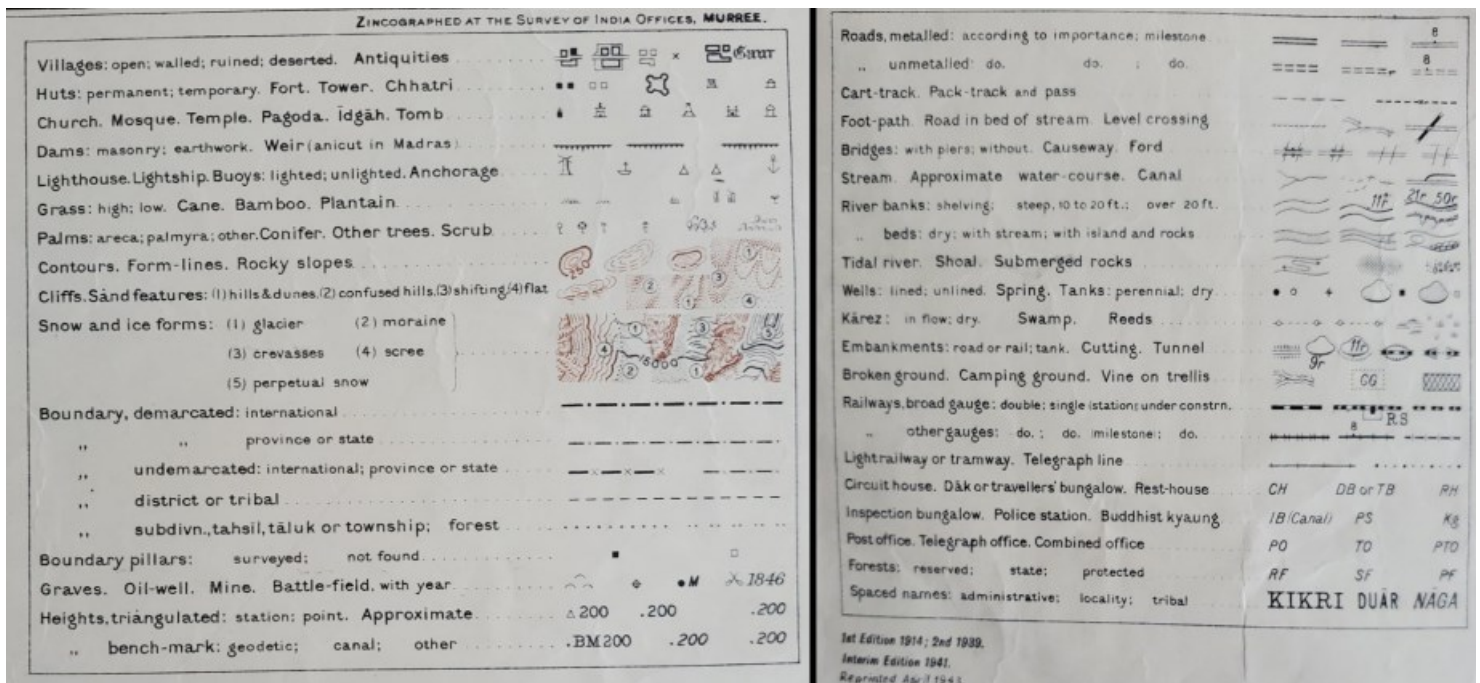 ZINCOGRAPHED AT THE SURVEY OF INDIA OFFICES, MURREE.
Villages: open; walled; ruined; deserted. Antiquities Gaur
Huts: permanent; temporary. Fort. Tower. Chhatri
Church. Mosque. Temple. Pagoda. Īdgāh. Tomb
Dams: masonry; earthwork. Weir (anicut in Madras)
Lighthouse. Lightship. Buoys: lighted; unlighted. Anchorage
Grass: high; low. Cane. Bamboo. Plantain
Palms: areca; palmyra; other. Conifer. Other trees. Scrub
Contours. Form-lines. Rocky slopes 250 1
Cliffs. Sand features: (1) hills & dunes, (2) confused hills, (3) shifting, (4) flat 2 1 3 4
Snow and ice forms: (1) glacier (2) moraine
(3) crevasses (4) scree
(5) perpetual snow
4 1 3 5 2 1
Boundary, demarcated: international
,, ,, province or state
,, undemarcated: international; province or state
,, district or tribal
,, subdivn., tahsil, tāluk or township; forest
Boundary pillars: surveyed; not found
Graves. Oil-well. Mine. Battle-field, with year M 1846
Heights, triangulated: station; point. Approximate 200 .200 .200
,, bench-mark: geodetic; canal; other .BM 200 .200 .200
Roads, metalled: according to importance; milestone 8
,, unmetalled: do. do. ; do. 8
Cart-track. Pack-track and pass
Foot-path. Road in bed of stream. Level crossing
Bridges: with piers; without. Causeway. Ford
Stream. Approximate water-course. Canal
River banks: shelving; steep, 10 to 20 ft.; over 20 ft. 11r 21r 50r
,, beds: dry; with stream; with island and rocks
Tidal river. Shoal. Submerged rocks
Wells: lined; unlined. Spring. Tanks: perennial; dry
Kārez: in flow; dry. Swamp. Reeds
Embankments: road or rail; tank. Cutting. Tunnel 9r 11r
Broken ground. Camping ground. Vine on trellis CG
Railways, broad gauge: double; single (station; under constrn. RS
,, other gauges: do.; do. (milestone); do. 8
Light railway or tramway. Telegraph line
Circuit house. Dāk or travellers' bungalow. Rest-house CH DB or TB RH
Inspection bungalow. Police station. Buddhist kyaung IB (Canal) PS Kg
Post office. Telegraph office. Combined office PO TO PTO
Forests: reserved; state; protected RF SF PF
Spaced names: administrative; locality; tribal KIKRI DUĀR NĀGA
1st Edition 1914; 2nd 1939.
Interim Edition 1941.
Reprinted April